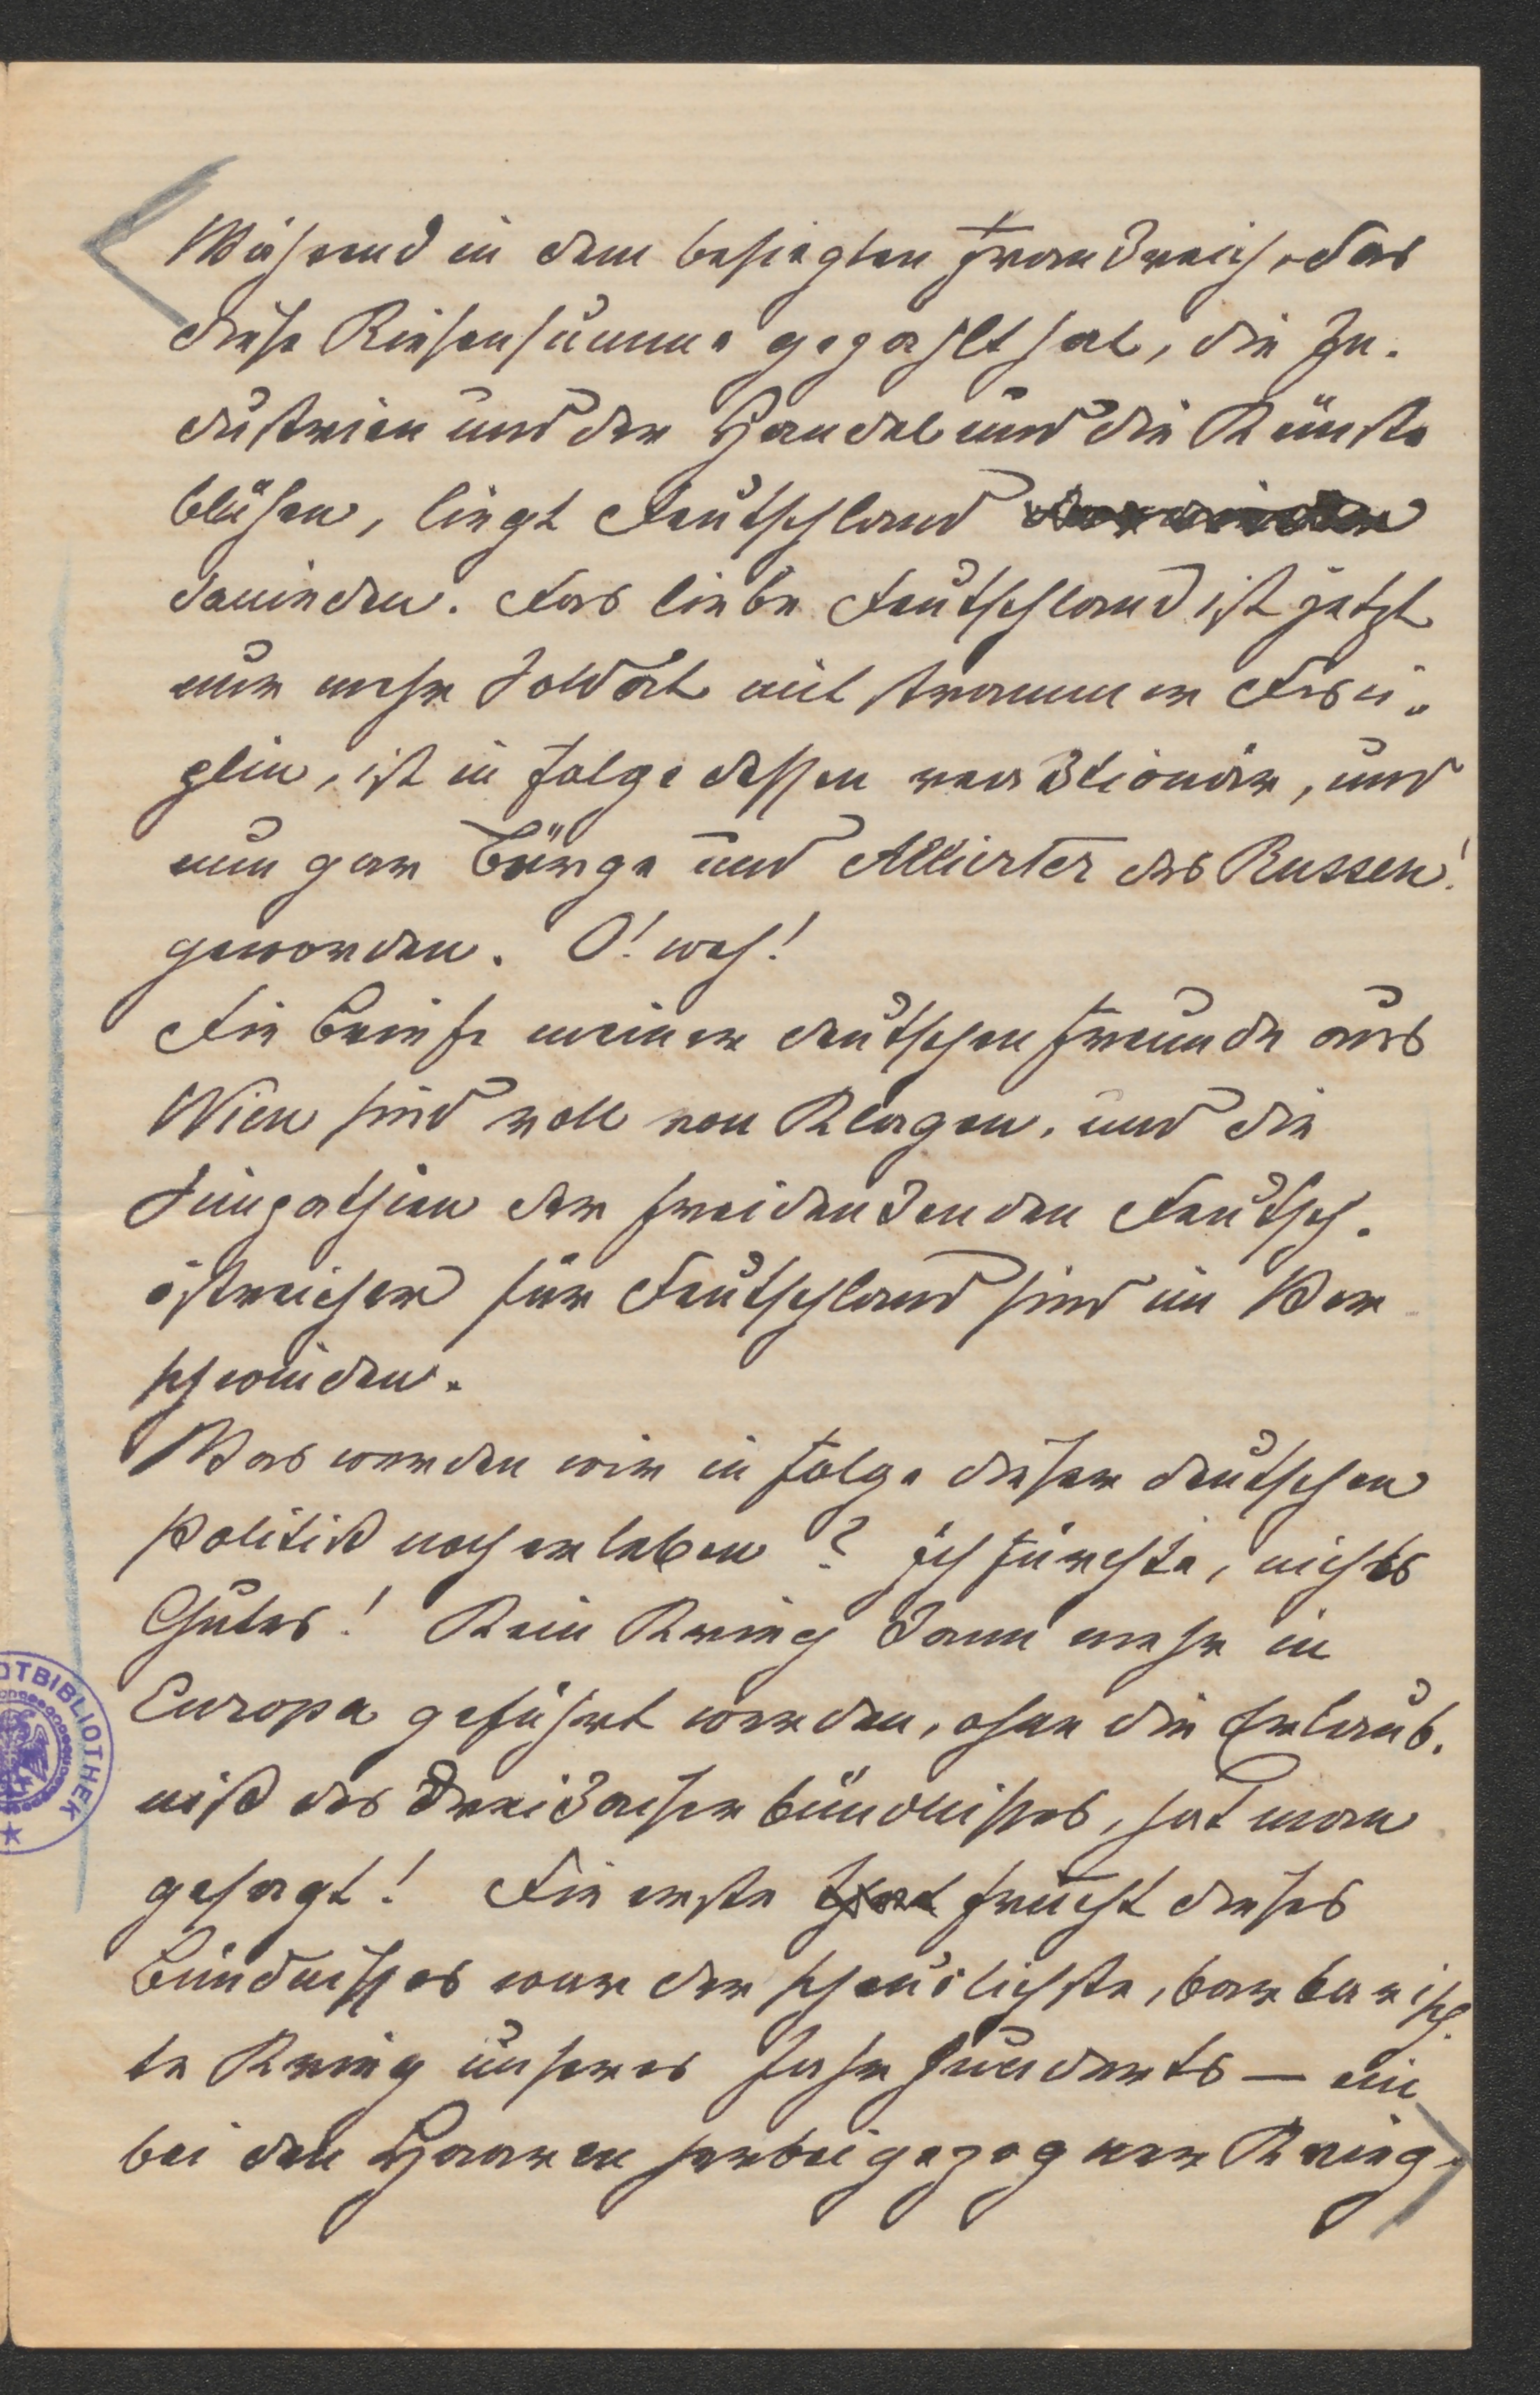 Während in dem besiegten Frankreich, das
diese Riesensumme gezahlt hat, die In-
dustrien und der Handel und die Künste
blühen, liegt Deutschland
danieder. Das liebe Deutschland ist jetzt
nur mehr Soldat mit strammer Disci-
plin, ist in Folge dessen reaktionär, und
nun gar Bürge und Alliirter des Russen!
geworden. O! weh!
Die Briefe meiner deutschen Freunde aus
Wien sind voll von Klagen, und die
Simpathien der freidenkenden Deutsch-
östreicher für Deutschland sind im Ver
schwinden.
Was werden wir in Folge dieser deutschen
Politik noch erleben? Ich fürchte, nichts
Gutes! Kein Krieg kann mehr in
Europa geführt werden, ohne die Erlaub-
niß des Dreikaiserbündnisses, hat man
gesagt! Die erste Frucht dieses
Bündnisses war der scheuslichste, barbarisch-
te Krieg unseres Jahrhunderts — ein
bei den Haaren herbeigezogner Krieg.
OTBIBLIOTHEK